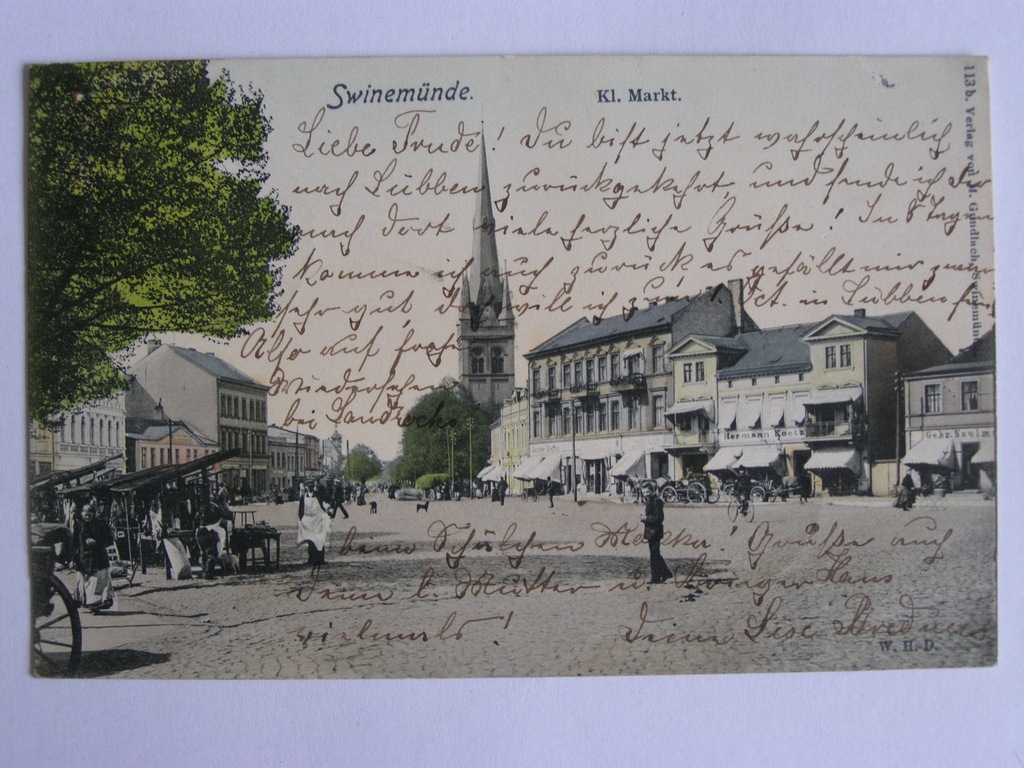 Swinemünde.
Kl. Markt.
113 b. Verlag von H. Gundlach, Swinemün
Liebe Trude! Du bist jetzt wahrscheinlich
nach Lübben zurückgekehrt, und sende ich Dir
nach dort viele herzliche Grüße! In 8 Tagen
komme ich auch zurück es gefällt mir zwar
sehr gut will ich zum Oct. in Lübben
Also auf frohes
Wiedersehen
bei
Hermann
Gebr.
beim Mokka! Grüße auch
Deine l. Mutter u. Hans
vielmals!
Deine Lise
W. H. D.